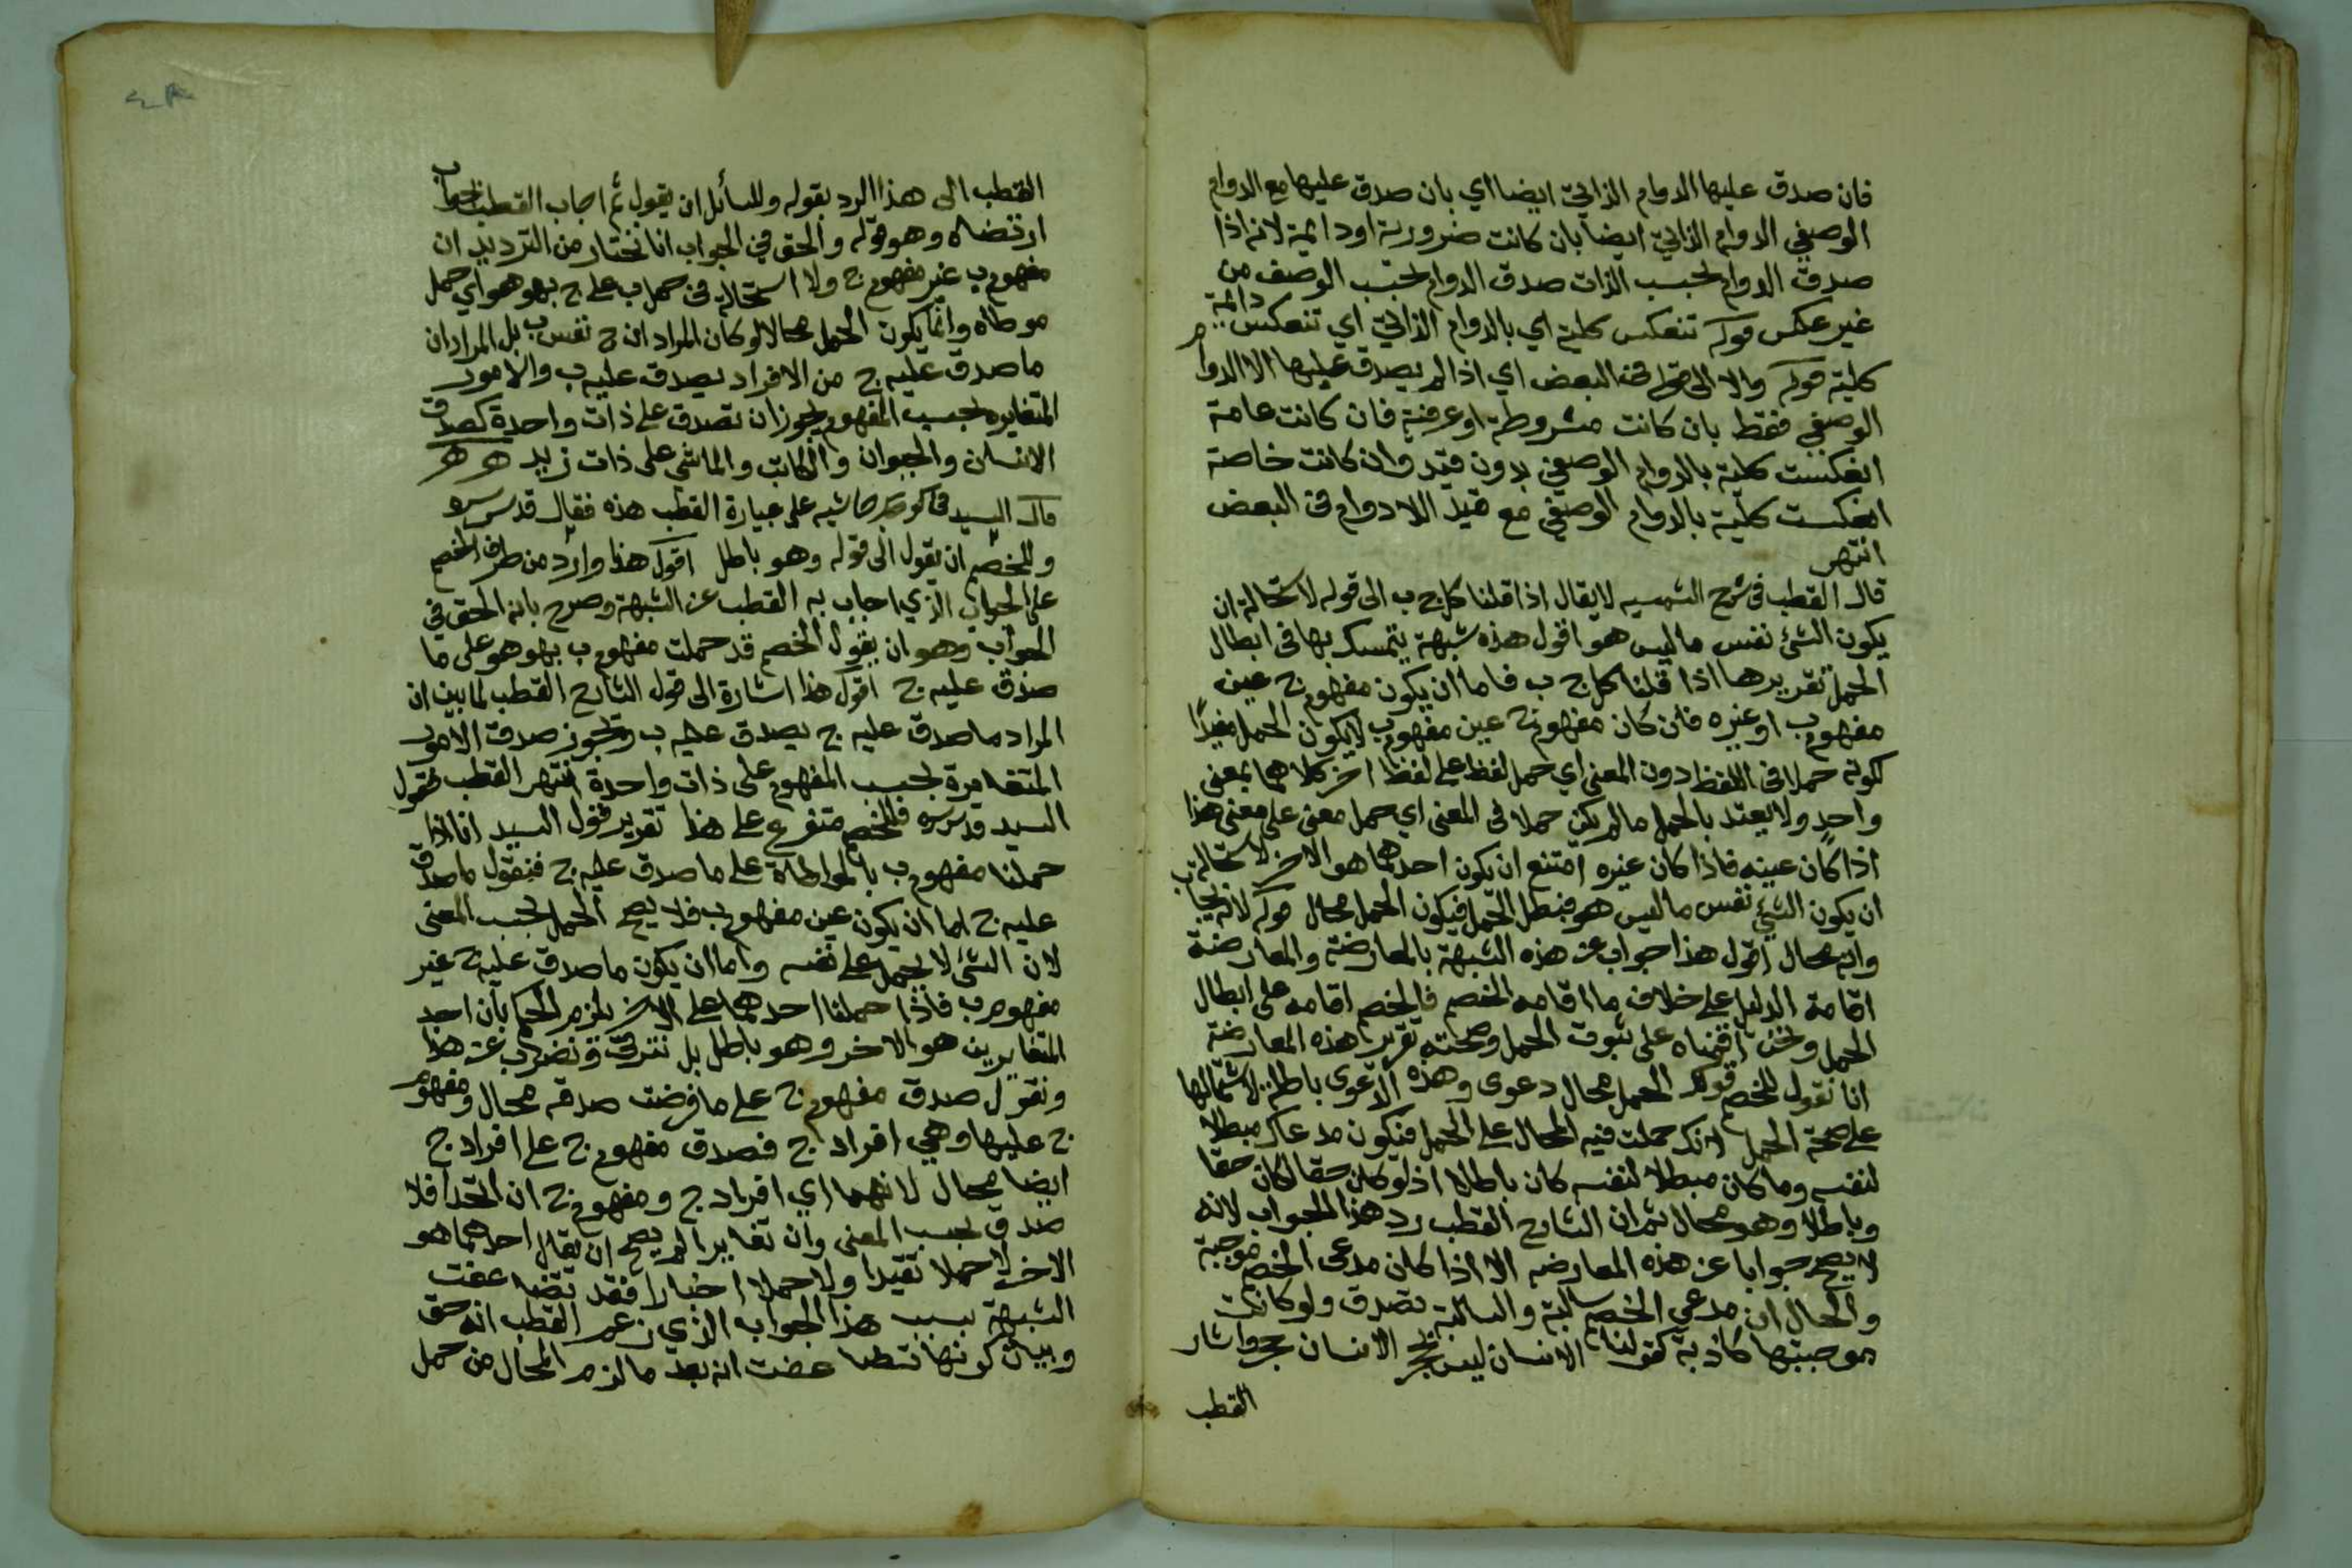 فان صدق عليها الدوام الذاتي ايضا اي بان صدق عليها مع الدوام
الوصفي الدوام الذاتي ايضا بان كانت ضرورية او دائمة لانه اذا
صدق الدوام بحسب الذات صدق الدوام بحسب الوصف من
غير عكس قوله تنعكس كلية اي بالدوام الذاتي اي تنعكس دائمة
كلية قوله والا الى قوله في البعض اي اذا لم يصدق عليها الا الدوام
الوصفي فقط بان كانت مشروطة او عرفية فان كانت عامة
انعكست كلية بالدوام الوصفي بدون قيد وان كانت خاصة
انعكست كلية بالدوام الوصفي مع قيد اللادوام في البعض
انتهى
قال القطب في شرح الشمسيه لا يقال اذا قلنا كل ج ب الى قوله لاستحالة ان
يكون الشئ نفس ما ليس هو اقول هذه شبهة يتمسك بها في ابطال
الحمل تقريرها اذا قلنا كل ج ب فاما ان يكون مفهوم ج عين
مفهوم ب او غيره فان كان مفهوم ج عين مفهوم ب لا يكون الحمل مفيدًا
لكونه حملا في اللفظ دون المعنى اي حمل لفظ على لفظ اخر كلاهما بمعنى
واحدٍ ولا يعتد بالحمل ما لم يكن حملا في المعنى اي حمل معنى على معنى هذا
اذا كان عينه فاذا كان غيره امتنع ان يكون احدهما هو الاخر لاستحالة
ان يكون الشئ نفس ما ليس هو فبطل الحمل فيكون الحمل محال قوله لانه يجاب
وانه محال اقول هذا جواب عن هذه الشبهة بالمعارضة والمعارضة
اقامة الدليل على خلاف ما اقامه الخصم فالخصم اقامه على ابطال
الحمل ونحن اقمناه على ثبوت الحمل وصحته تقرير هذه المعارضة
انا نقول للخصم قولك الحمل محال دعوى وهذه الدعوى باطلة لاشتمالها
على صحة الحمل لانك حملت فيه المحال على الحمل فيكون مدعاك مبطلا
لنفسه وما كان مبطلا لنفسه كان باطلا اذ لو كان حقا لكان حقا
وباطلا وهو محال ثم ان الشارح القطب رد هذا الجواب لانه
لا يصح جوابا عن هذه المعارضه الا اذا كان مدعى الخصم موجبة
والحال ان مدعى الخصم سالبة والسالبة تصدق ولو كانت
موجبتها كاذبة كقولنا الانسان ليس بحجر الانسان حجر واشار
القطب
القطب الى هذا الرد بقوله وللسائل ان يقول ثم اجاب القطب بجواب
ارتضاه وهو قوله والحق في الجواب انا نختار من الترديد ان
مفهوم ب غير مفهوم ج ولا استحالة في حمل ب على ج بهو هو اي حمل
مواطاه وانما يكون الحمل محالا لو كان المراد ان ج نفس ب بل المراد ان
ما صدق عليه ج من الافراد يصدق عليه ب والامور
المتغايره بحسب المفهوم يجوز ان تصدق على ذات واحدة كصدق
الانسان والحيوان والكاتب والماشي على ذات زيد
قال السيد في حاشيه على عبارة القطب هذه فقال قدس سره
وللخصم ان يقول الى قوله وهو باطل اقول هذا وارد من طرف الخصم
على الجواب الذي اجاب به القطب عن الشبهة وصرح بانه الحق في
الجواب وهو ان يقول الخصم قد حملت مفهوم ب بهو هو على ما
صدق عليه ج اقول هذا اشارة الى قول الشارح القطب لما بين ان
المراد ما صدق عليه ج يصدق عليه ب ويجوز صدق الامور
المتغايرة بحسب المفهوم على ذات واحدة انتهى القطب فقول
السيد قدس سره فللخصم متفرع على هذا تقرير قول السيد انا اذا
حملنا مفهوم ب بالمواطاة على ما صدق عليه ج فنقول ما صدق
عليه ج اما ان يكون عين مفهوم ب فلا يصح الحمل بحسب المعنى
لان الشئ لا يحمل على نفسه واما ان يكون ما صدق عليه ج غير
مفهوم ب فاذا حملنا احدهما على الاخر يلزم الحكم بان احد
المتغايرين هو الاخر وهو باطل بل نترقى ونضرب عن هذا
ونقول صدق مفهوم ج على ما فرضت صدقه محال ومفهوم
ج عليها وهي افراد ج فصدق مفهوم ج على افراد ج
ايضا محال لانهما اي افراد ج ومفهوم ج ان اتحدا فلا
صدق بحسب المعنى وان تغايرا لم يصح ان يقال احدهما هو
الاخر لا حملا تقيدا ولا حملا اخبارا فقد تضاعفت
الشبهة بسبب هذا الجواب الذي زعم القطب انه حق
وبيان كونها تضاعفت انه بعد ما لزم المحال من حمل